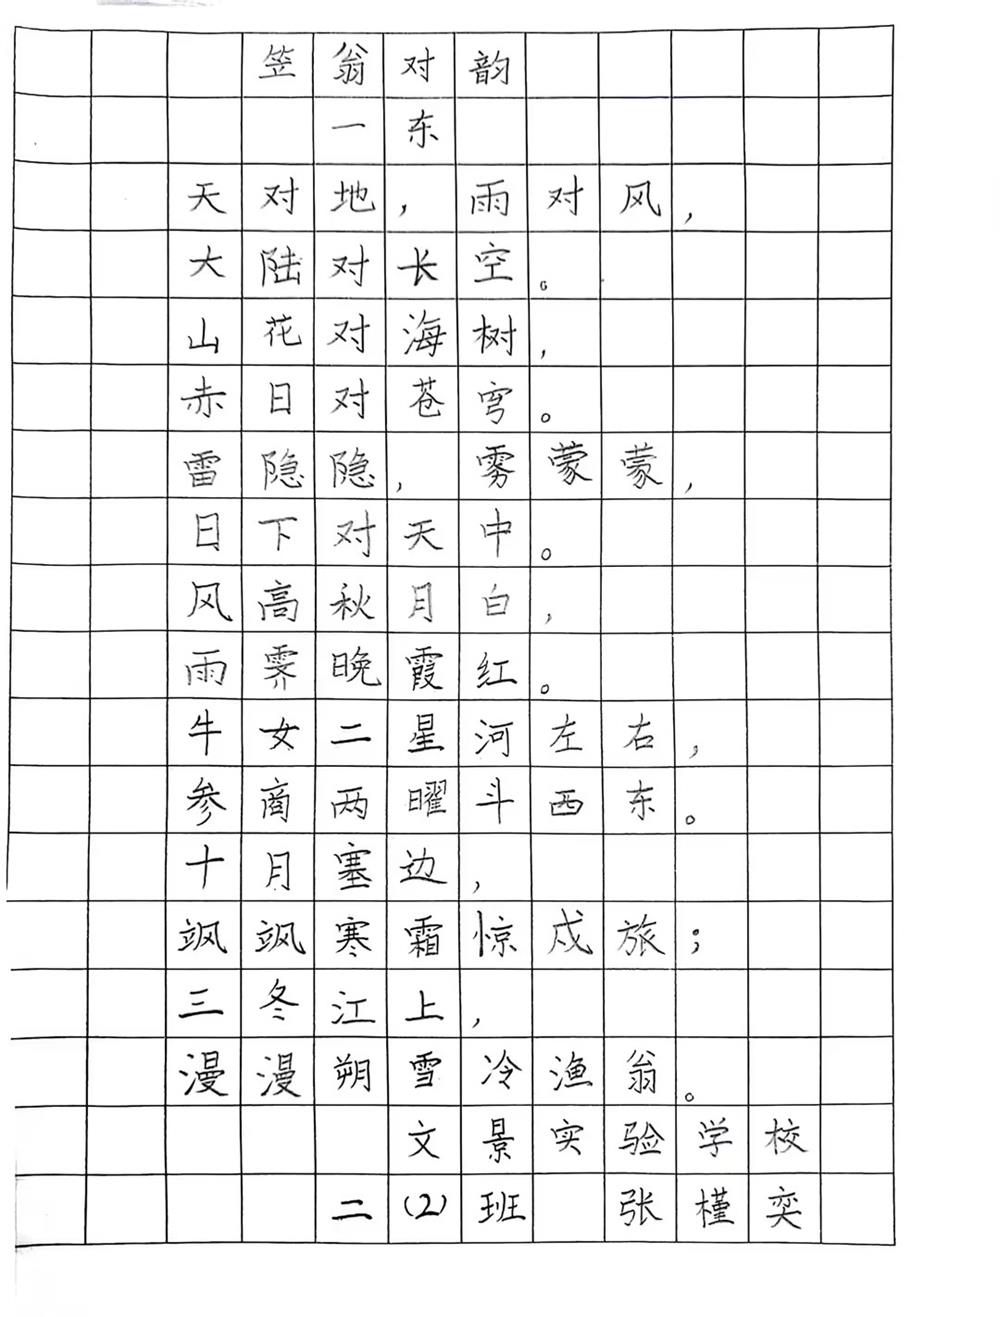 笠翁对韵
一东
天对地，雨对风，
大陆对长空。
山花对海树，
赤日对苍穹。
雷隐隐，雾蒙蒙，
日下对天中。
风高秋月白，
雨霁晚霞红。
牛女二星河左右，
参商两曜斗西东。
十月塞边，
飒飒寒霜惊戍旅；
三冬江上，
漫漫朔雪冷渔翁。
文景实验学校
二（2）班 张槿奕